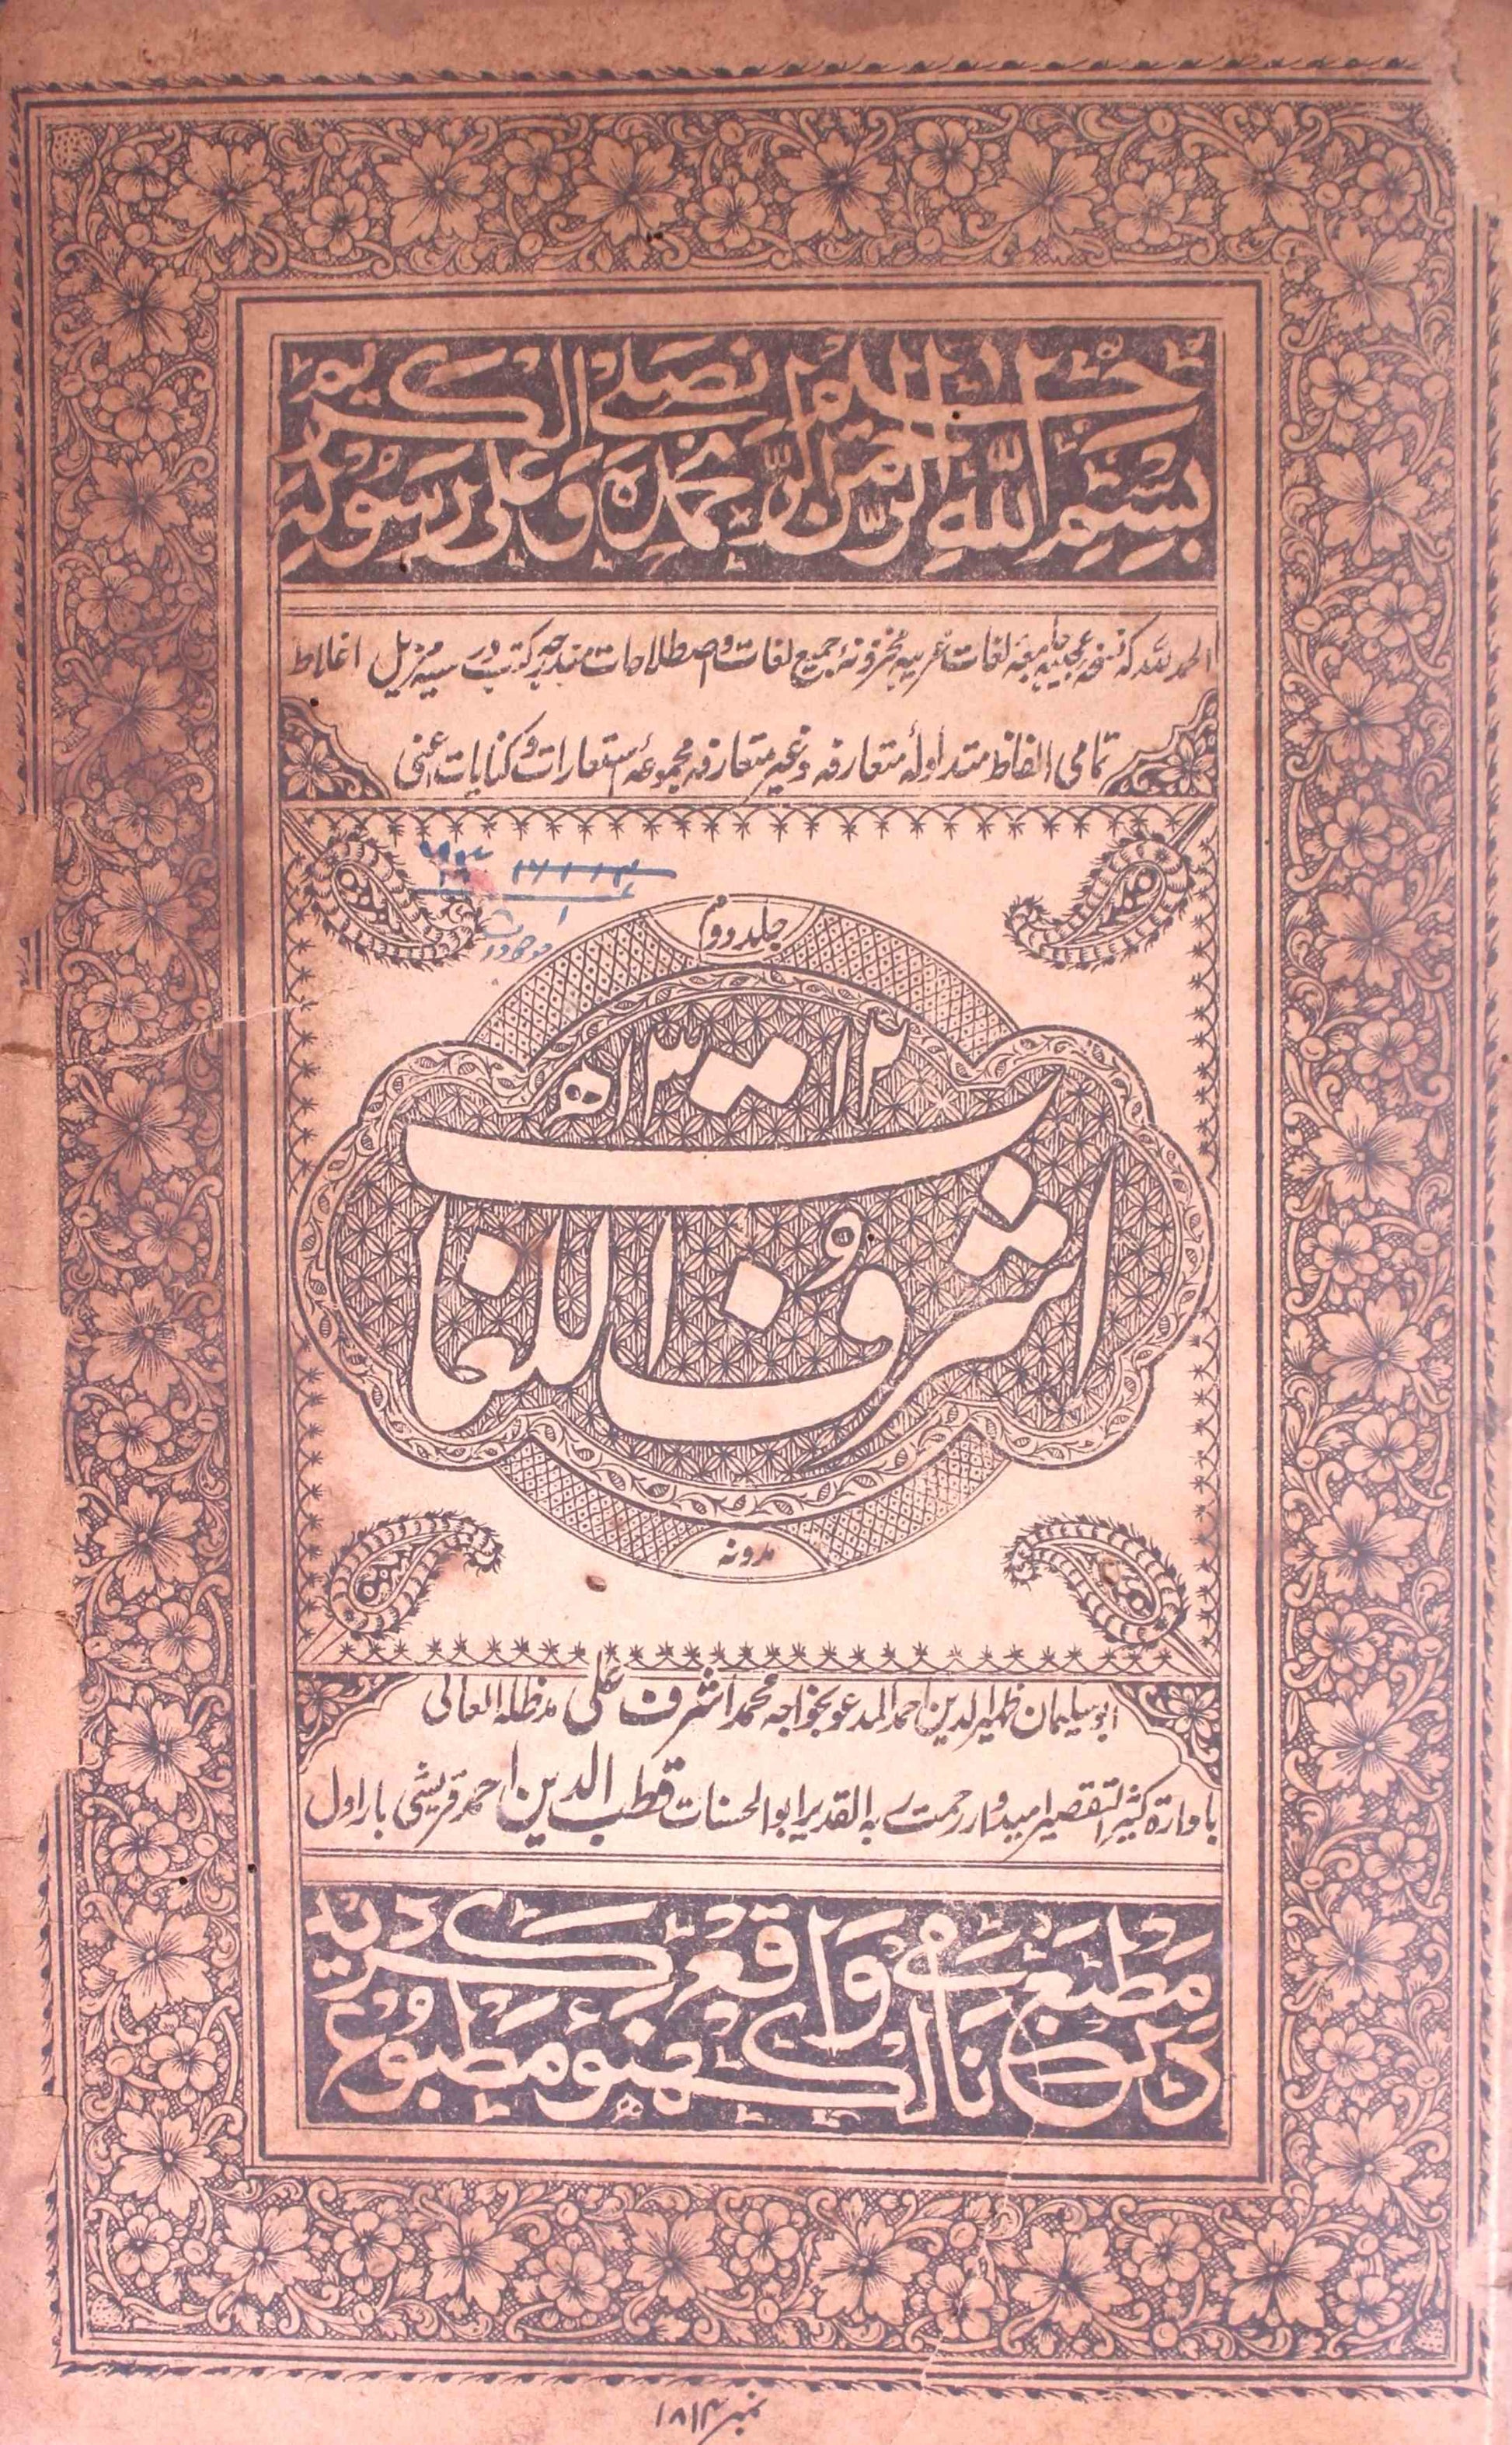 بسم الله الرحمن الرحيم
نحمده و نصلے علی رسوله الکریم
الحمد للہ کہ نسخۂ عجیبہ جامعۂ لغات عربیہ مخزونۂ جمیع لغات و اصطلاحات مندرجہ کتب درسیہ مزیل اغلاط
تمامی الفاظ متداولۂ متعارفہ و غیر متعارفہ مجموعۂ استعارات و کنایات اعنی
جلد دوم
۱۲ ۱۳ھ
اشرف اللغات
مدونہ
ابو سلیمان ظہیر الدین احمد المدعو بخواجہ محمد اشرف علی مدظلہ العالی
با دارۃ کثیر التقصیر امیدوار رحمت ربہ القدیر ابو الحسنات قطب الدین احمد قریشی بار اول
در مطبع نامی واقع لکھنؤ مطبوع گردید
نمبر ۱۸۱۴